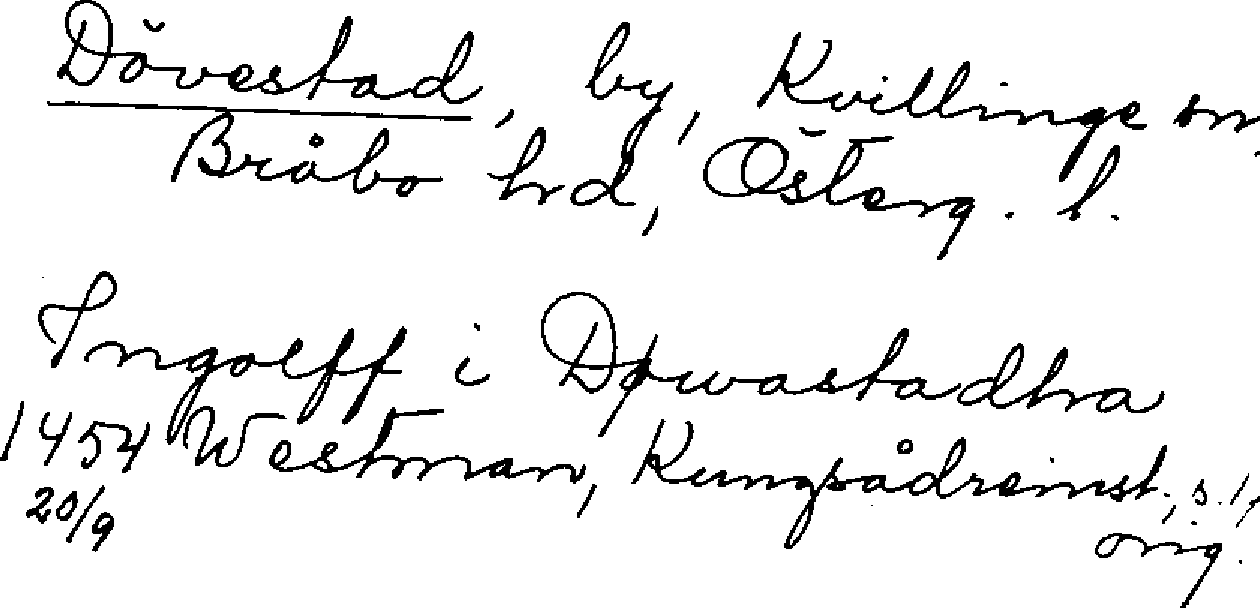 Dövestad, by, Kvillinge sn,
Bråbo hrd, Österg. l.
Ingolff i Døwastadha
1454 Westman, Kungsådreinst., s.
20/9
orig.